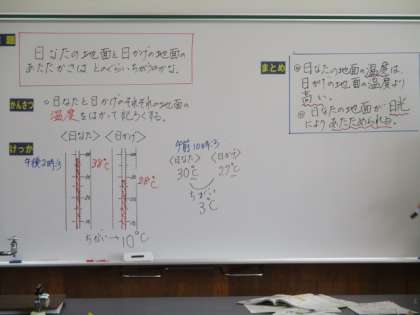 題
日なたの地面と日かげの地面の
あたたかさは どのぐらいちがうのかな。
かんさつ
○日なたと日かげのそれぞれの地面の
温度をはかって記ろくする。
けっか
<日なた> <日かげ>
午後2時
38℃
28℃
ちがい→10℃
午前10時
<日なた> <日かげ>
30℃ 27℃
ちがい
3℃
まとめ
◎日なたの地面の温度は、
日かげの地面の温度より
高い。
◎日なたの地面が日光
によりあたためられる。